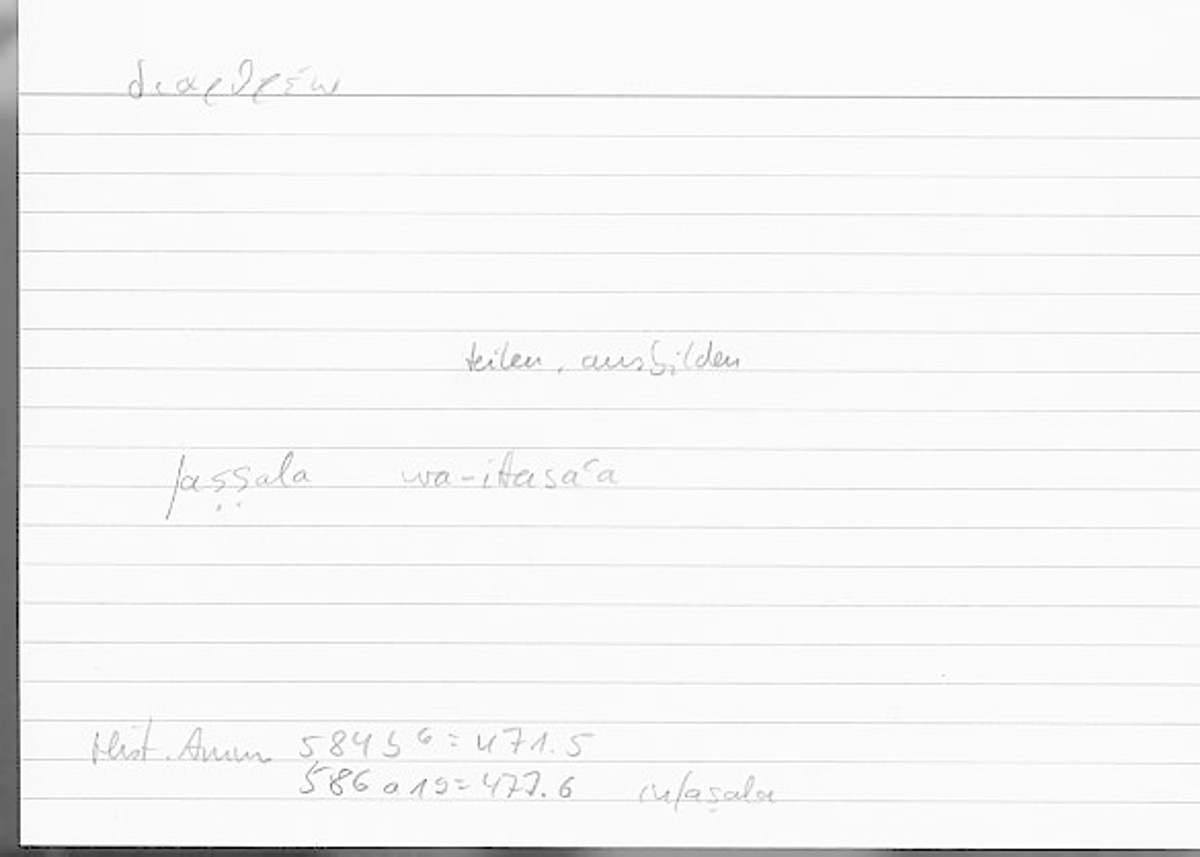 διαρθρέω
teilen, ausbilden
faṣṣala wa-ittasaʿa
Hist. Anim 584 b 6 = 471.5
586 a 19 = 477.6 infaṣala